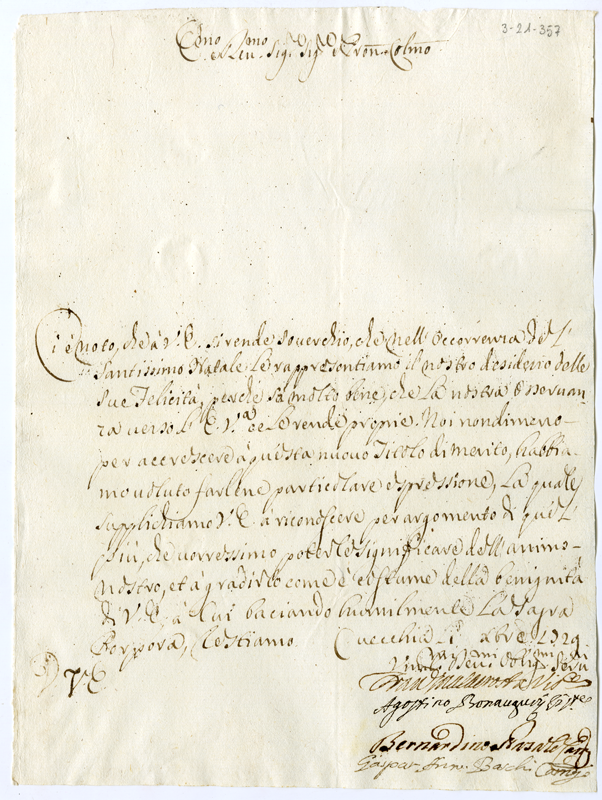 3-21-357
Emo e Rmo Sig.r Sig.r e Pron Colmo
Ci è noto, che à V. E. si rende soverchio, che nell'occorrenza del
Santissimo Natale Le rappresentiamo il nostro desiderio delle
sue Felicità, perché sà molto bene, che La nostra Osservan
za verso L'E. V.a ce Le rende proprie. Noi nondimeno
per accrescere à questa nuovo Titolo di merito, habbia
mo voluto farlene particolare espressione, La quale
supplichiamo V. E. à riconoscere per argomento di quel
più, che vorressimo poterle significare dell'animo
nostro, et à gradirlo come è costume della benignità
di V. E., à Cui baciando humilmente La Sagra
Porpora, restiamo. Cvecchia Li Xbre 1729
D V. E.
Umi Devmi Oblmi Servi
Agostino Bonaugurj
Bernardino
Gaspar Baschi